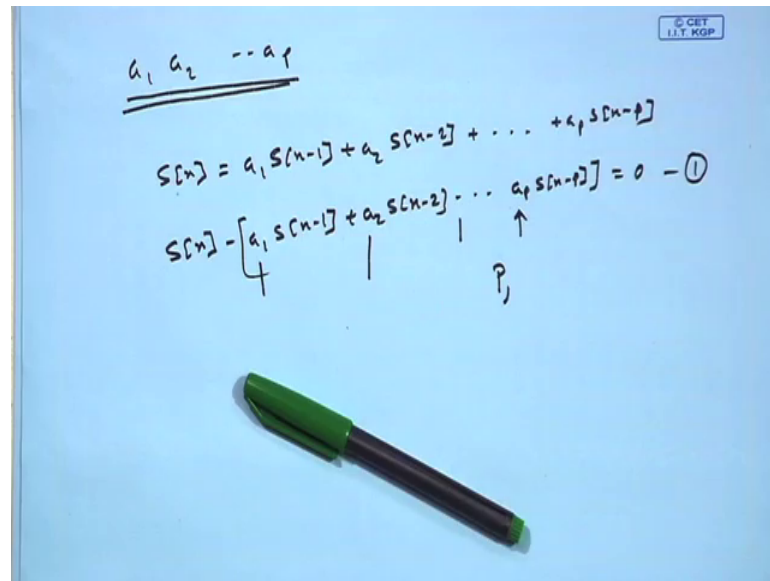 © CET
I.I.T. KGP
a₁ a₂ -- aₚ
S[n] = a₁ S[n-1] + a₂ S[n-2] + ... + aₚ S[n-p]
S[n] - [a₁ S[n-1] + a₂ S[n-2] - .. aₚ S[n-p]] = 0 - ①
P,